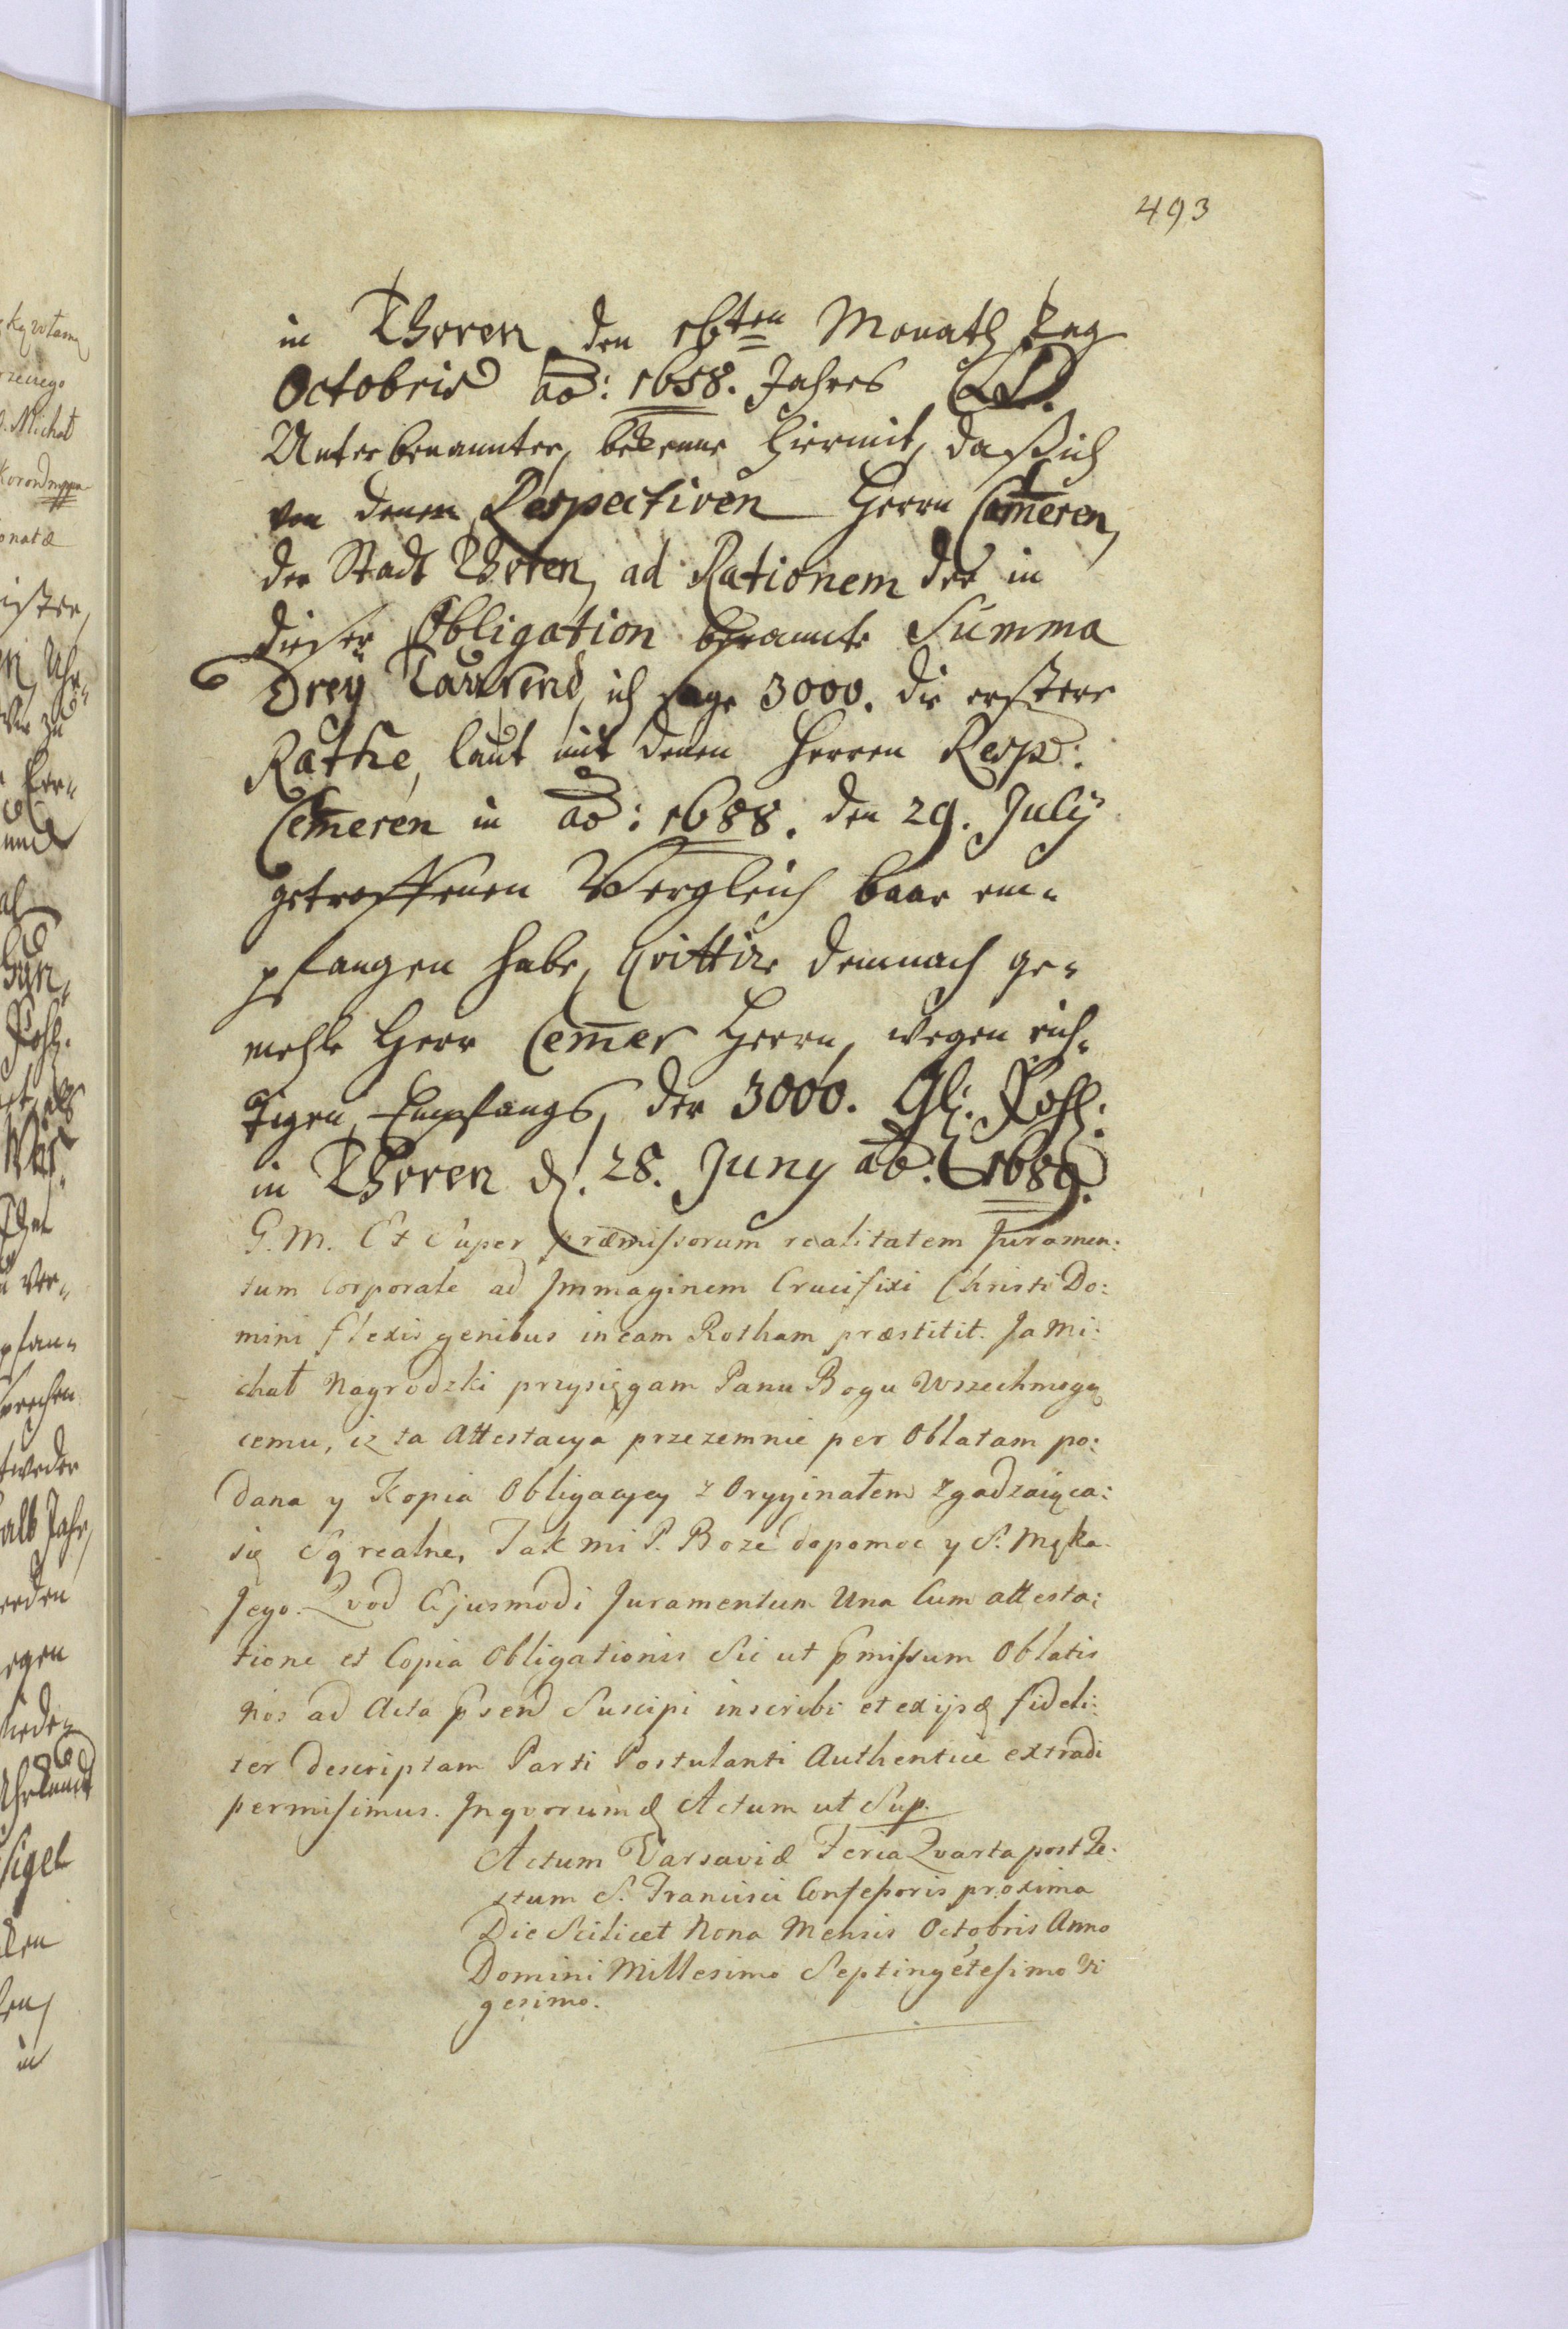 493
in Thoren den 16ten Monath Tag
Octobris ao: 1658. Jahres
Unterbenannter, bekenne hiermit, daß ich
von denen Respectiven Herrn Cem̅eren,
der Stadt Thoren, ad Rationem der in
dieser Obligation benannte Summa
Dreÿ Tausend, ich sage 3000. die erstere
Rathe, laut mit denen Herren Resp:
Cem̅eren in ao: 1688. den 29. Julij
getroffenen Vergleich baar em-
pfangen habe, Qvittire demnach ge-
mehlte Herr Cem̅er Herrn, wegen rich-
tigen Empfangs, der 3000. Gl: Pohl:
in Thoren d. 28. Juny ao: 1689.
G. M. Et Super præmissorum realitatem Juramen:
tum Corporale ad Immaginem Crucifixi Christi Do:
mini flexis genibus in eam Rotham præstitit. Ja Mi:
chał Nagrodzki przysięgam Panu Bogu Wszechmogą
cemu, iz ta Attestacya przezemnie per Oblatam po:
dana y Kopia Obligacyey z Oryginałem zgadzaiąca:
się są realne, Tak mi P. Boze dopomoc y S. Męka
Jego. Qvod Ejusmodi Juramentum Una Cum attesta:
tione et Copia Obligationis Sic ut pmissum Oblatis
Nos ad Acta psend Suscipi inscribi et ex ijsq fideli:
ter descriptam Parti Postulanti Authentice extradi
permisimus. Inqvorum & Actum ut Sup.
Actum Varsaviæ Feria Qvarta post Fe:
stum S. Francisci Confessoris proxima
Die Scilicet Nona Mensis Octobris Anno
Domini Millesimo Septingẽtesimo Vi
gesimo.